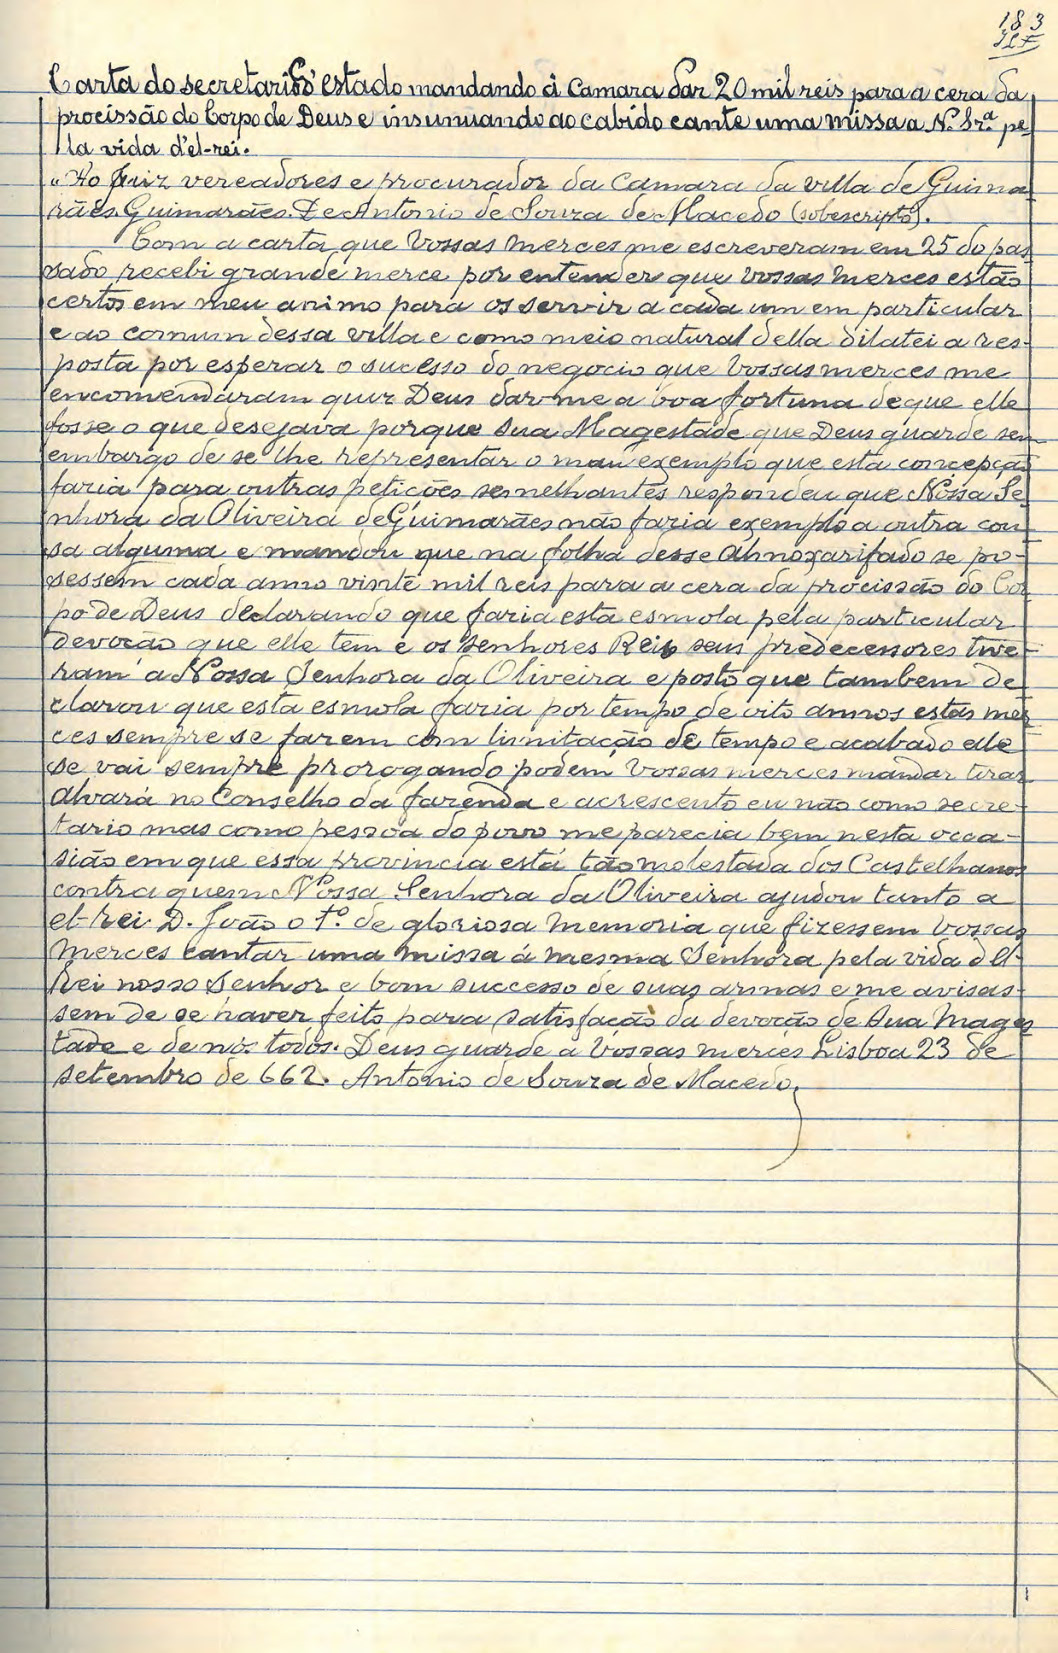 183
Carta do secretario d'estado mandando à Camara dar 20 mil reis para a cera da
procissão do Corpo de Deus e insunuando ao cabido cante uma missa a N. Srª. pe-
la vida d'el-rei.
"Ao Juiz vereadores e procurador da Camara da villa de Guima-
rães Guimarães. De Antonio de Souza de Macedo (sobescripto).
Com a carta que Vossas Merces me escreveram em 25 do pas-
sado recebi grande merce por entender que Vossas Merces estão
certos em meu animo para os servir a cada um em particular
e ao comum dessa villa e como meio natural della dilatei a res-
posta por esperar o sucesso do negocio que Vossas merces me
encomendaram quiz Deus dar-me a boa fortuna de que elle
fosse o que desejava porque Sua Magestade que Deus guarde sem
embargo de se lhe representar o mau exemplo que esta concepção
faria para outras petições semelhantes respondeu que Nossa Se-
nhora da Oliveira de Guimarães não faria exemplo a outra cou-
sa alguma e mandou que na folha desse Almoxarifado se po-
sessem cada anno vinte mil reis para a cera da procissão do Cor-
po de Deus declarando que faria esta esmola pela particular
devoção que elle tem e os senhores Reis seus predecessores tive-
ram a Nossa Senhora da Oliveira e posto que tambem de-
clarou que esta esmola faria por tempo de oito annos estas mer-
ces sempre se fazem com limitação de tempo e acabado elle
se vai sempre prorogando podem Vossas merces mandar tirar
Alvará no Conselho da fazenda e acrescento eu não como secre-
tario mas como pessoa do povo me parecia bem nesta occa-
sião em que essa provincia está tão molestada dos Castelhanos
contra quem Nossa Senhora da Oliveira ajudou tanto a
el-rei D. João o 1º. de gloriosa memoria que fizessem Vossas
Merces cantar uma missa á mesma Senhora pela vida d'El-
Rei nosso Senhor e bom successo de suas armas e me avisas-
sem de se haver feito para satisfação da devoção de Sua Mages-
tade e de nós todos. Deus guarde a Vossas merces Lisboa 23 de
setembro de 662. Antonio de Souza de Macedo,